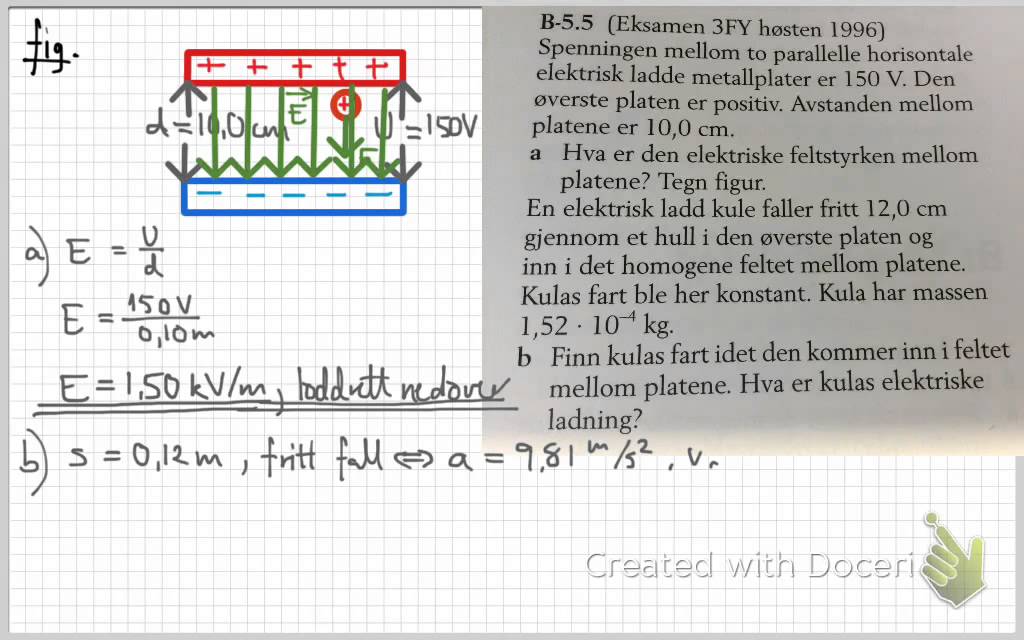 fig.
+ + + + +
E
+
d = 10,0 cm
U = 150V
F
— — — — —
a) E = U/d
E = 150V/0,10m
E = 1,50 kV/m, loddrett nedover
b) s = 0,12 m , fritt fall ⇔ a = 9,81 m/s² , v
B-5.5 (Eksamen 3FY høsten 1996)
Spenningen mellom to parallelle horisontale
elektrisk ladde metallplater er 150 V. Den
øverste platen er positiv. Avstanden mellom
platene er 10,0 cm.
a Hva er den elektriske feltstyrken mellom
platene? Tegn figur.
En elektrisk ladd kule faller fritt 12,0 cm
gjennom et hull i den øverste platen og
inn i det homogene feltet mellom platene.
Kulas fart ble her konstant. Kula har massen
1,52 · 10⁻⁴ kg.
b Finn kulas fart idet den kommer inn i feltet
mellom platene. Hva er kulas elektriske
ladning?
Created with Doceri